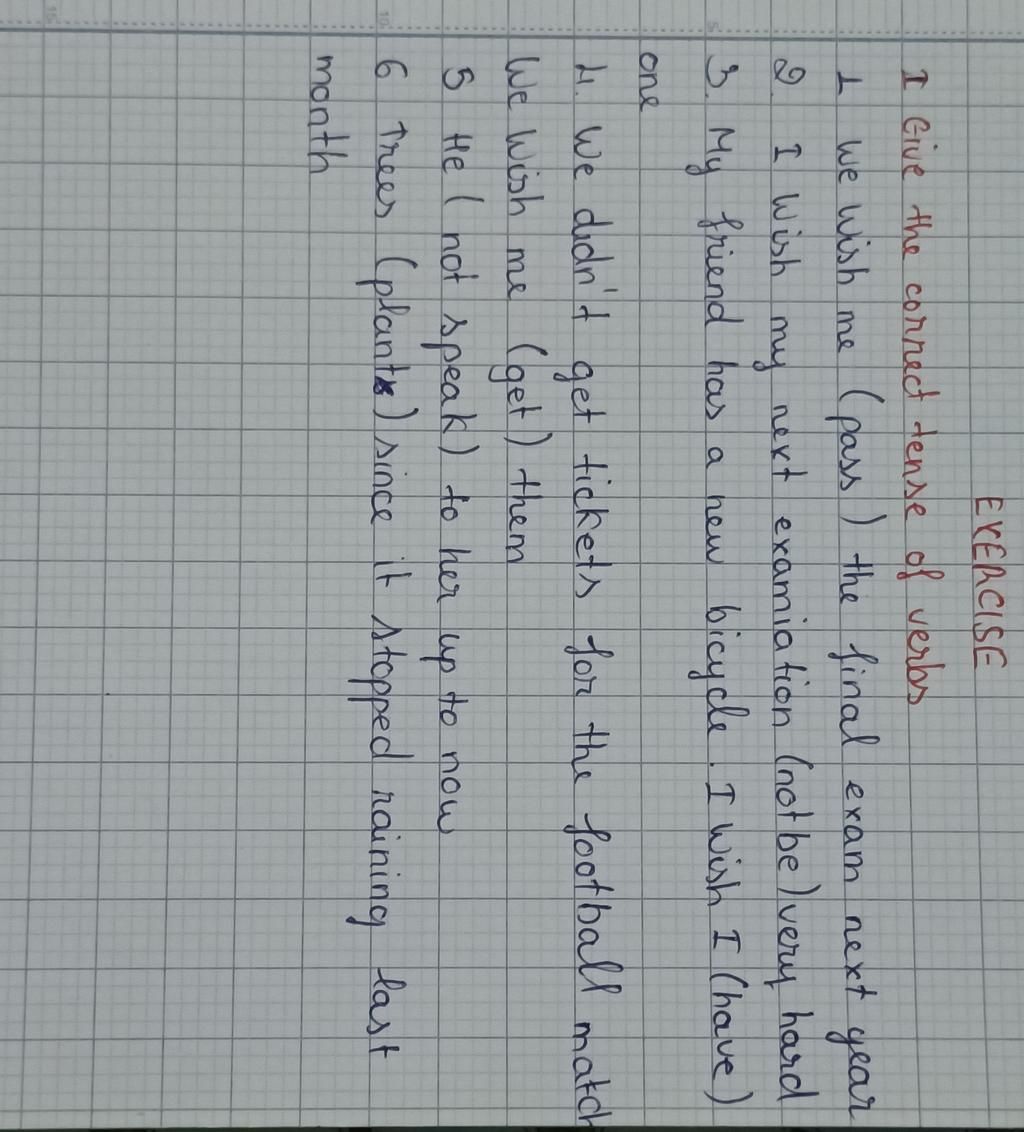 EXERCISE
I Give the correct tense of verbs
1 We wish me (pass) the final exam next year
2. I wish my next examiation (not be) very hard
3. My friend has a new bicycle. I wish I (have)
one
4. We didn't get tickets for the football match
We wish me (get) them
5 He (not speak) to her up to now
6 Trees (plant) since it stopped raining last
month